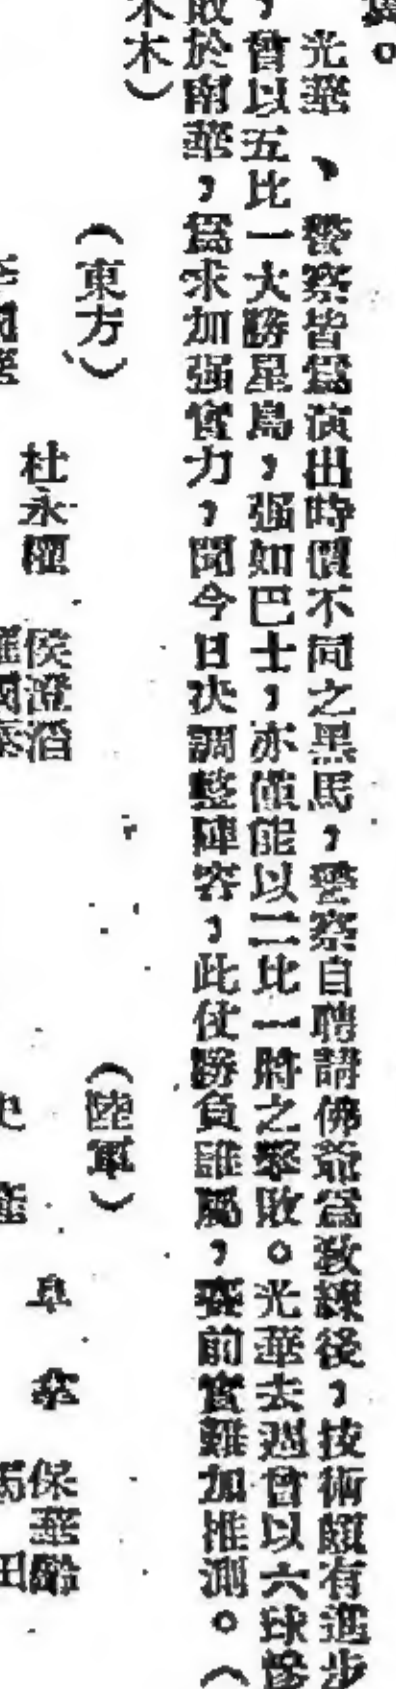 光華、警察皆爲演出時價不同之黑馬，警察自聘請佛爺爲教練後，技術頗有進步
，曾以五比一大勝星島，强如巴士，亦僅能以二比一將之擊敗。光華去週曾以六球慘
敗於南華，爲求加强實力，聞今日决調整陣容，此仗勝負誰屬，賽前實難加推測。（
木木）
（東方）
杜永權
侯澄滔
（陸軍）
保華齡